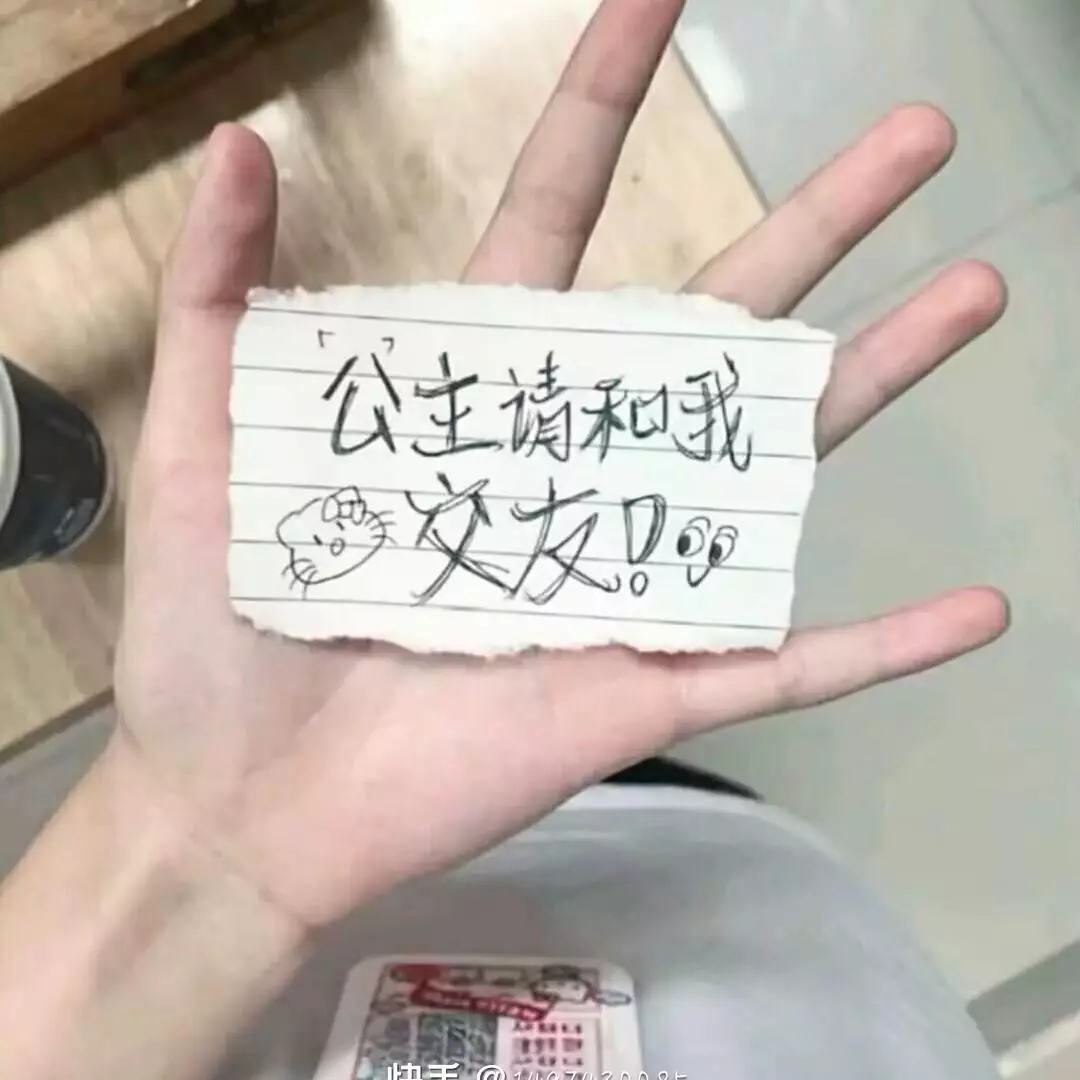 「公」主请和我
交友!
快手 @1497430085